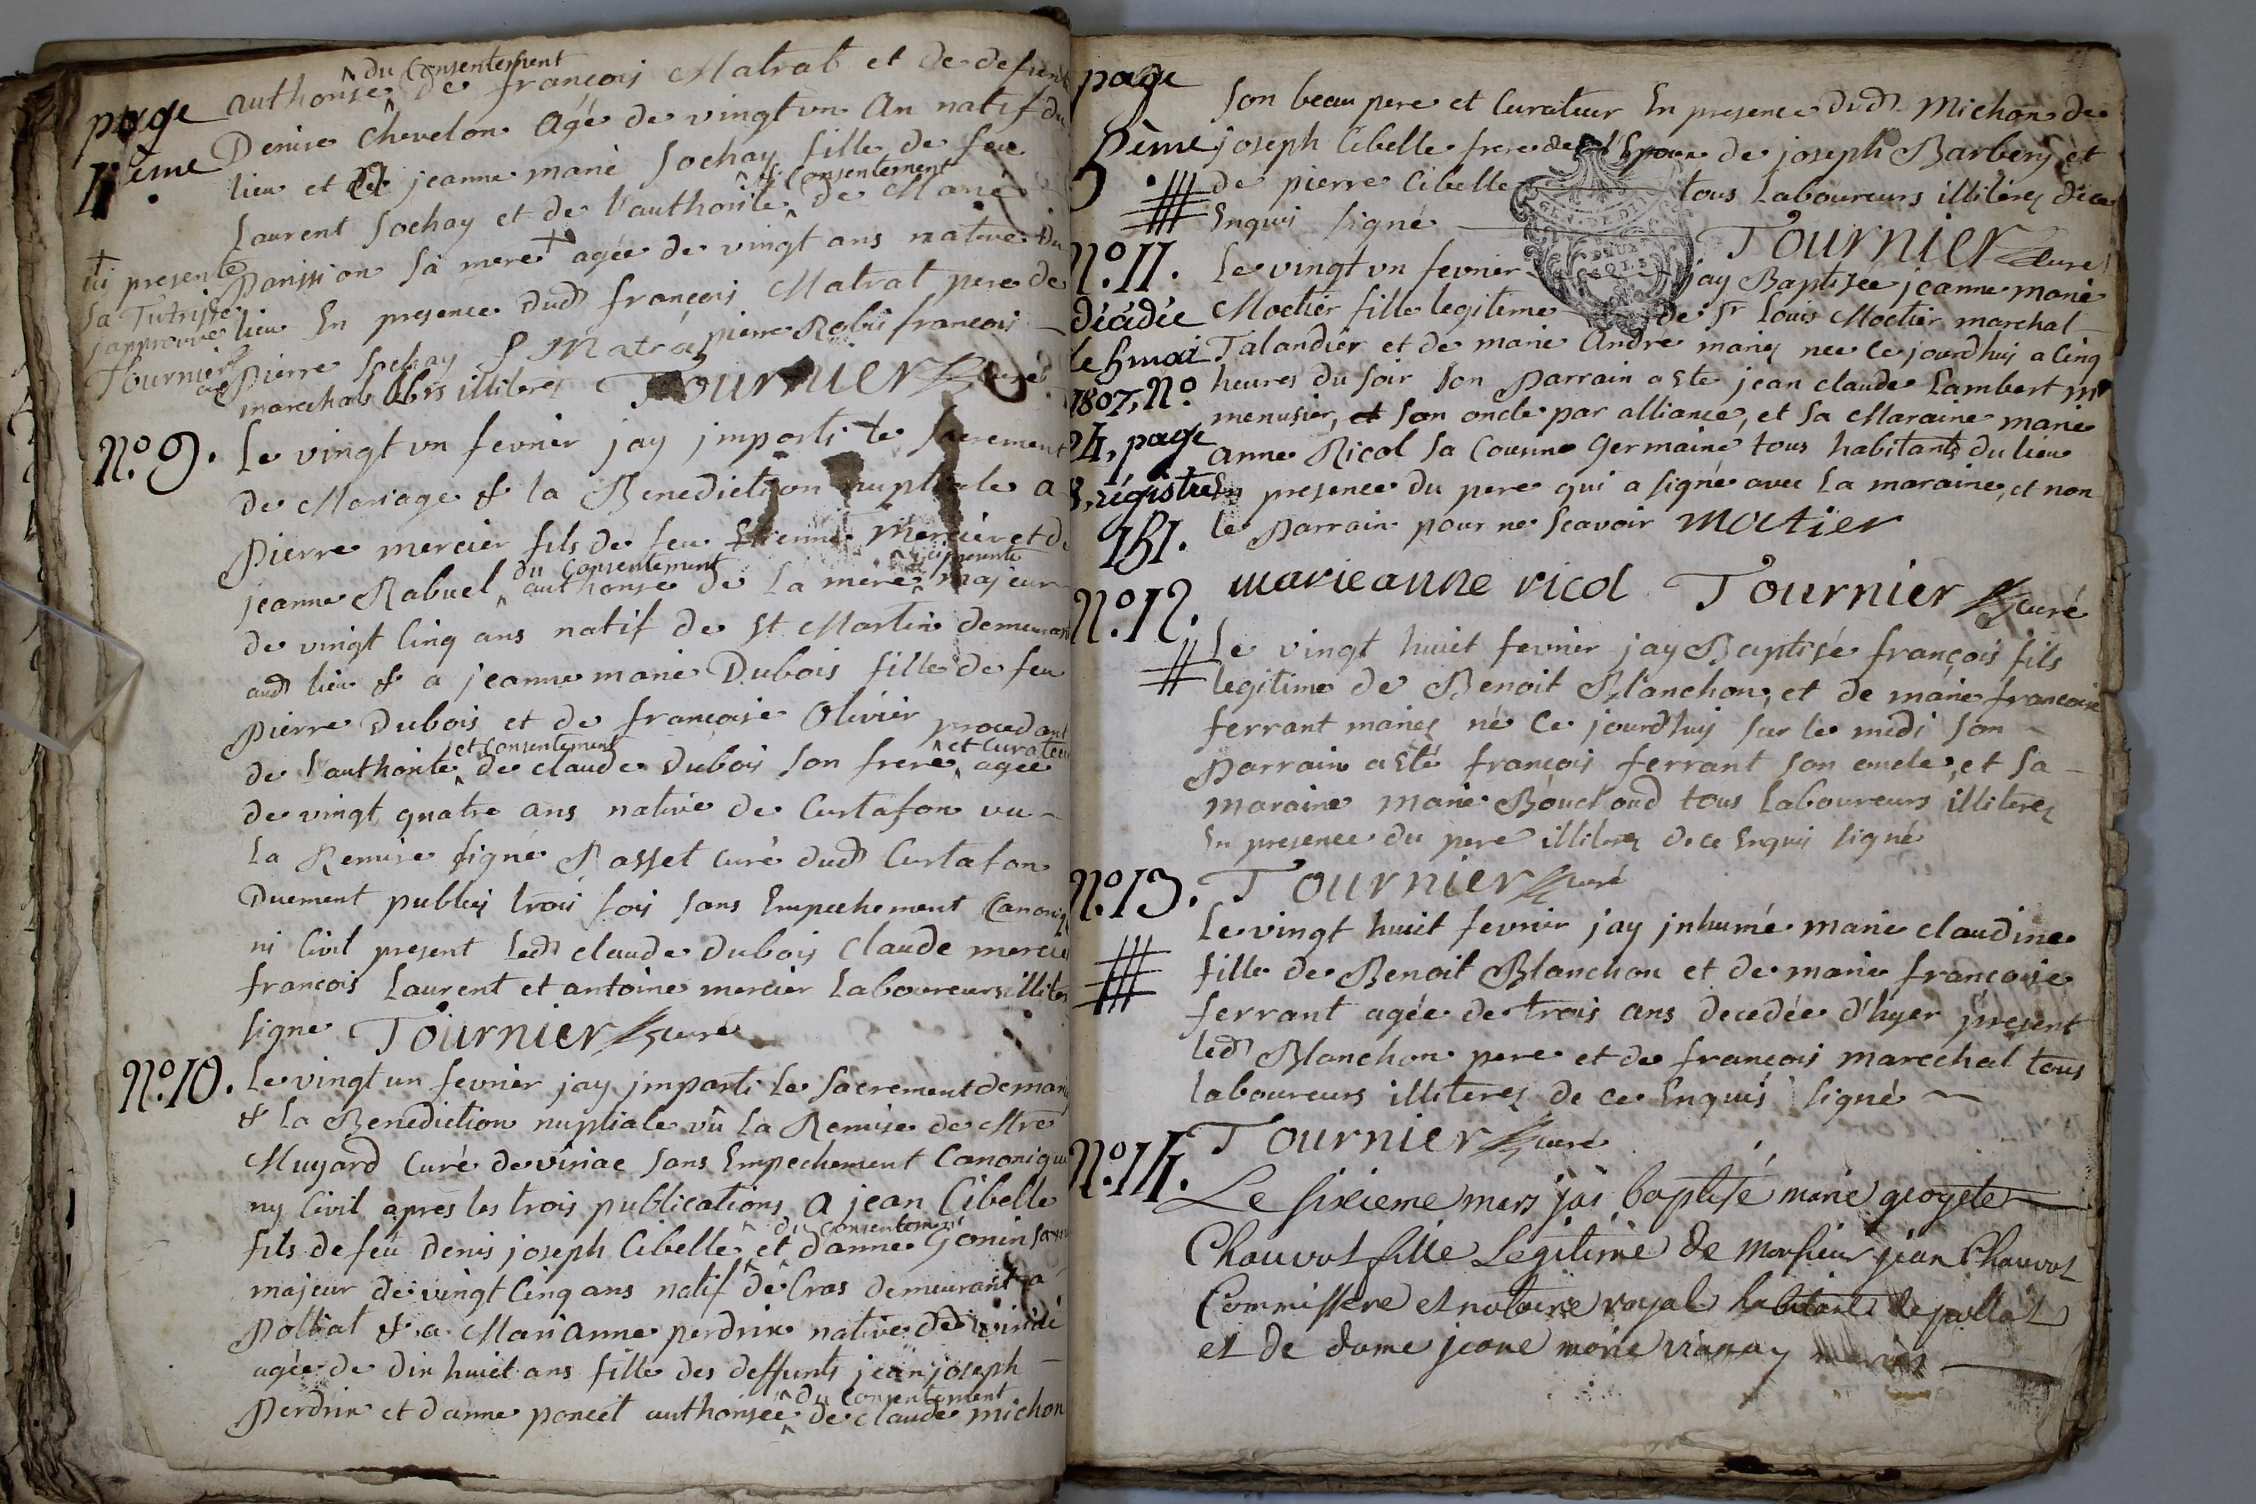 page
4ème
du Consentement
authorisé de françois Matrat et de defunte
Denise Chevelon Agé de vingt un An natif du
lieu et a jeanne marie Sochay fille de feu
Laurent Sochay et de l'authorité & Consentement de Marie
Parission Sa mere agée de vingt ans native du
lieu En presence dud françois Matrat pere de
pierre Sochay f Matra pierre Robin françois
marechal illiteres Tournier curé
ici presente
Sa Tutrisse
japprouve
Tournier
N.° 9.
Le vingt un fevrier jay imparti le Sacrement
de Mariage & la Benediction nuptiale a
Pierre mercier fils de feu Etienne Mercier et de
jeanne Rabuel du Consentement authorisé de la mere ici presente majeur
de vingt Cinq ans natif de St Martin demeurant
aud lieu & a jeanne marie Dubois fille de feu
Pierre Dubois et de françoise Olivier procedant
de l'authorité et Consentement de claude Dubois Son frere et Curateur agée
de vingt quatre ans native de Curtafon vu
La Remise signé Rasset curé dud Curtafon
Duement publiés trois fois Sans Empechement Canoniq
ni Civil present led claude Dubois Claude mercier
françois Laurent et antoine mercier Laboureurs illiteres
Signé Tournier curé
N.° 10.
Le vingt un fevrier jay imparti Le Sacrement de mariag
& la Benediction nuptiale vû La Remise de Mre
Muyard Curé de viriac Sans Empechement Canonique
ny Civil apres les trois publications a jean Cibelle
fils de feu denis joseph Cibelle et du Consentement danne Gonin Sa
majeur de vingt Cinq ans natif de Cras demeurant a
Polliat & a Marianne perdrix native de viria
agée de dix huict ans fille des deffunts jean joseph
Perdrix et danne poncet authorisée du Consentement de claude michon
page
5ème
Son beau pere et Curateur En presence dud Michon de
joseph Cibelle frere de l'Epoux de joseph Barberg et
de pierre Cibelle tous Laboureurs illiteres de ce
Enquis Signé Tournier Curé
N.° 11.
décédée
le 5 mai
1807, N°
24, page
8, régistre
151.
Le vingt un fevrier jay Baptisee jeanne marie
Moctier fille legitime de Sr Louis Moctier marchal
Talandier et de marie Andre mariez nee ce jourdhuy a Cinq
heures du Soir Son Parrain a ete jean claude Lambert m
menusier, et Son oncle par alliance, et Sa Maraine marie
anne Ricol Sa Cousine Germaine tous habitants du lieu
En presence du pere qui a Signé avec La maraine, et non
le Parrain pour ne Scavoir moctier
marieanne ricol Tournier curé
N.° 12.
Le vingt huict fevrier jay Baptisé françois fils
Legitime de Benoit Blanchon, et de marie françoise
ferrant mariez né Ce jourdhuy Sur le midi Son
Parrain a eté françois ferrant Son oncle, et Sa
maraine Marie Bouchoud tous Laboureurs illiterez
En presence du pere illiterez de ce Enquis Signé
Tournier curé
N.° 13.
Le vingt huict fevrier jay jnhumé marie claudine
fille de Benoit Blanchon et de marie françoise
ferrant agée de trois ans decedée d'hyer present
led Blanchon pere et de françois marechal tous
laboureurs illiterez de ce Enquis Signé
Tournier curé
N.° 14.
Le Sixieme mars jai baptisé marie
Chauvot fille Legitime de Monsieur jean Chauvot
Commissere et notaire royal habitant de pollat
et de dame jeane marie vianay mariés